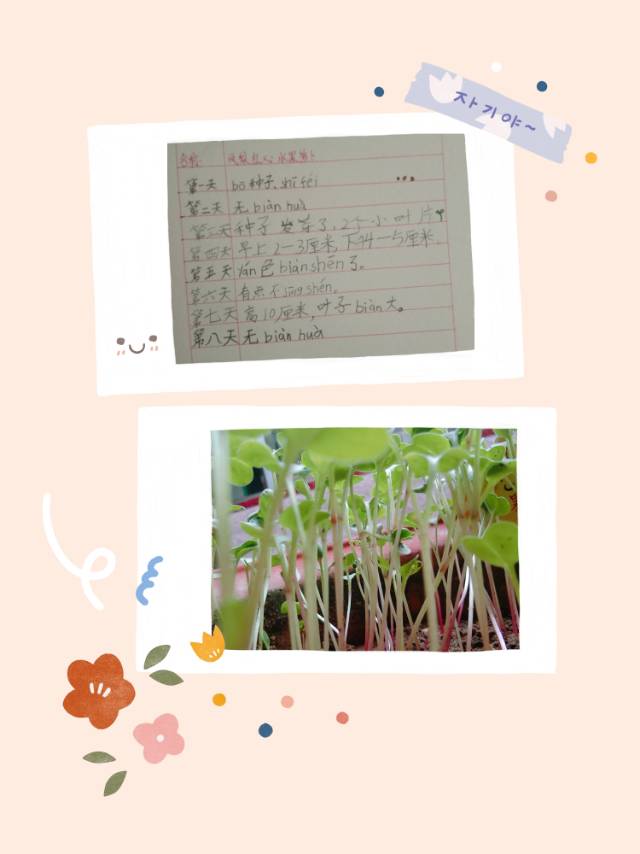 자기야~
名称: 红心水果萝卜
第一天 bō种子、shī féi
第二天 无 biàn huà
第三天 种子发芽了,2个小叶片
第四天 早上2—3厘米,下午4—5厘米.
第五天 yán色biàn shēn了。
第六天 有点不jīng shén。
第七天 高10厘米,叶子biàn大。
第八天 无 biàn huà